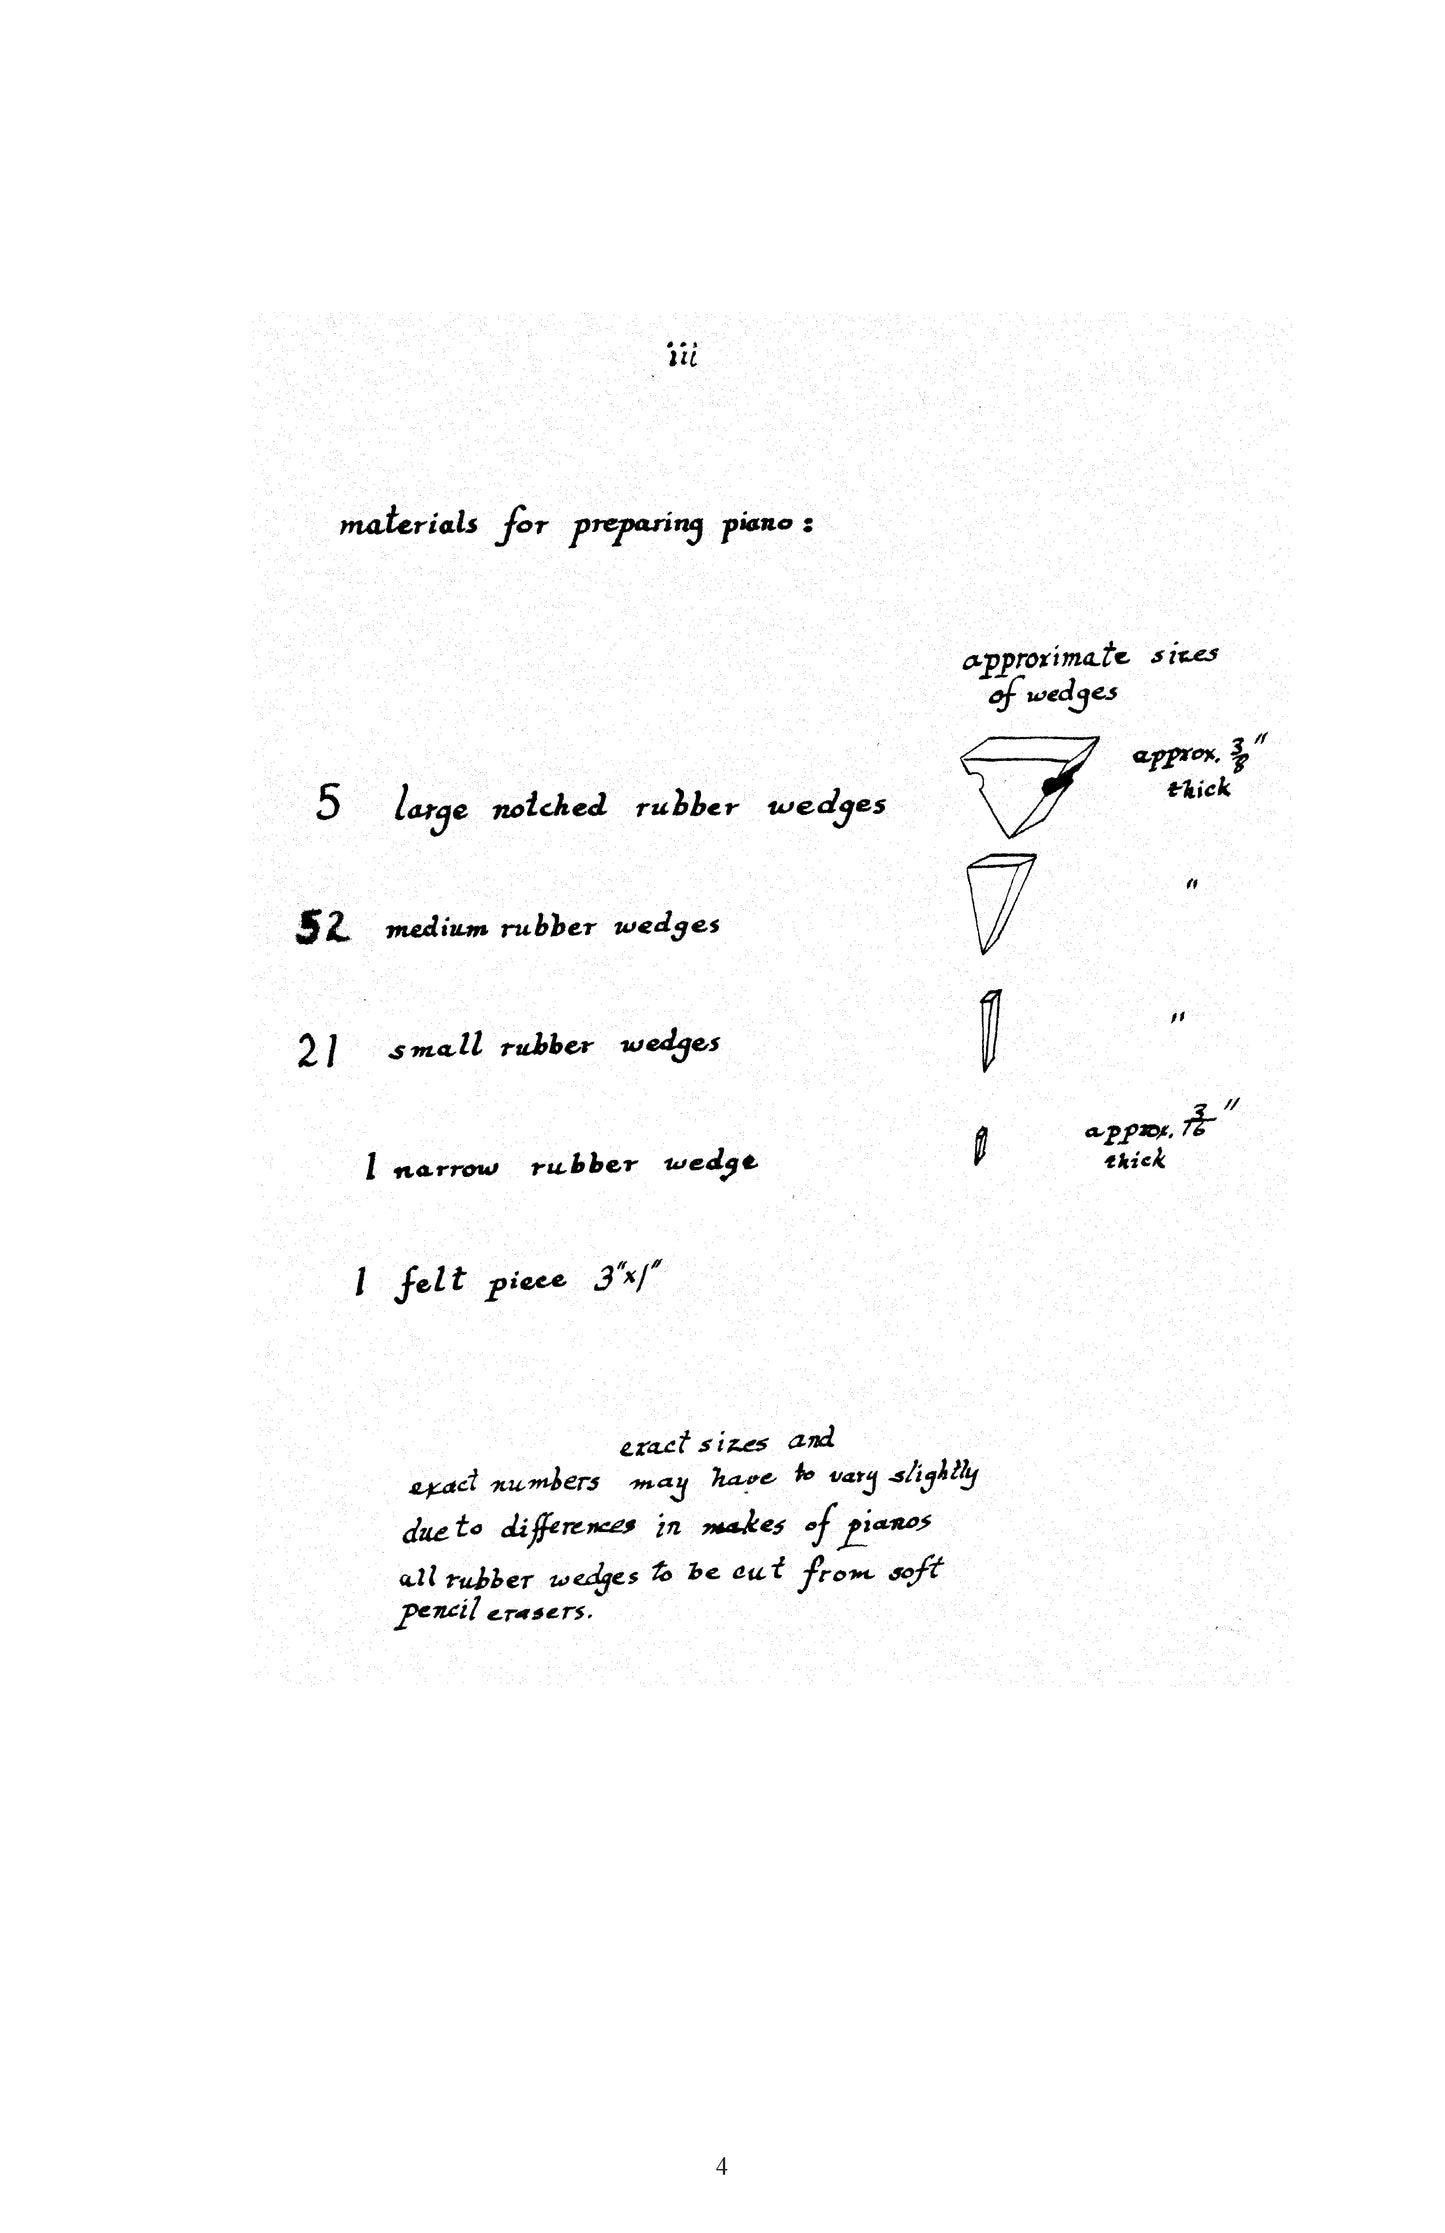 iii
materials for preparing piano:
approximate sizes
of wedges
5 large notched rubber wedges approx. 3/8"
thick
52 medium rubber wedges "
21 small rubber wedges "
1 narrow rubber wedge approx. 3/16"
thick
1 felt piece 3"x1"
exact sizes and
exact numbers may have to vary slightly
due to differences in makes of pianos
all rubber wedges to be cut from soft
pencil erasers.
4